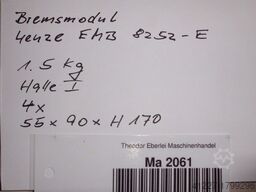 Bremsmodul
Lenze EMB 8252-E
1.5 Kg
Halle I
4x
55 x 90 x H 170
Theodor Eberlei Maschinenhandel
Ma 2061